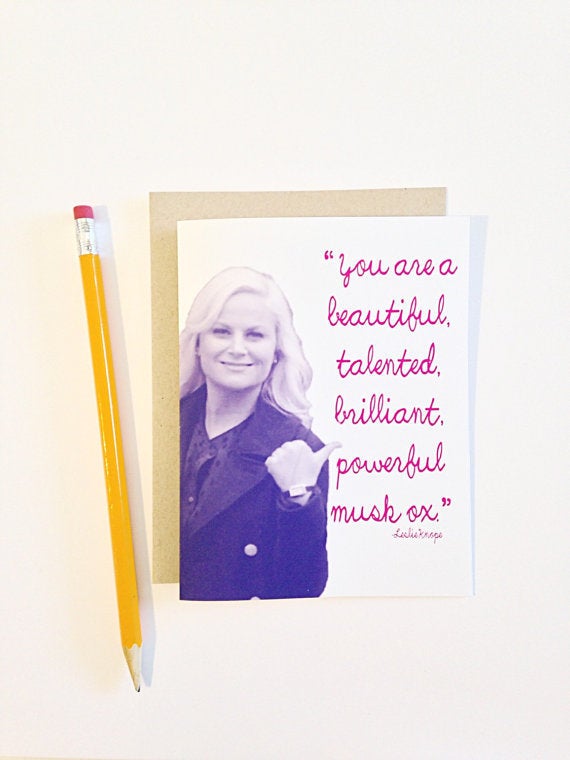 “You are a
beautiful,
talented,
brilliant,
powerful
musk ox.”
-Leslie Knope